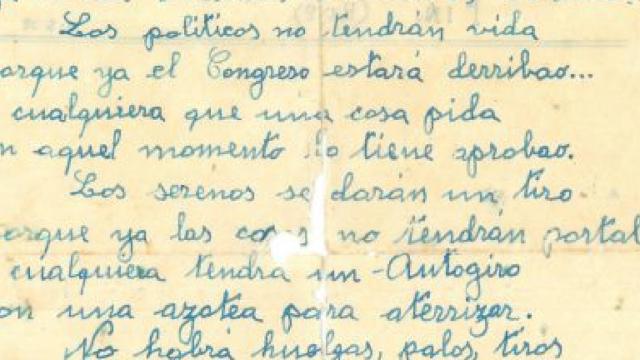 Los politicos no tendrán vida
orque ya el Congreso estará derribao...
cualquiera que una cosa pida
n aquel momento lo tiene aprobao.
Los serenos se darán un tiro
orque ya las cas s no tendrán portal
cualquiera tendra un Autogiro
on una azotea para aterrizar.
No habrá huelgas, palos, tiros